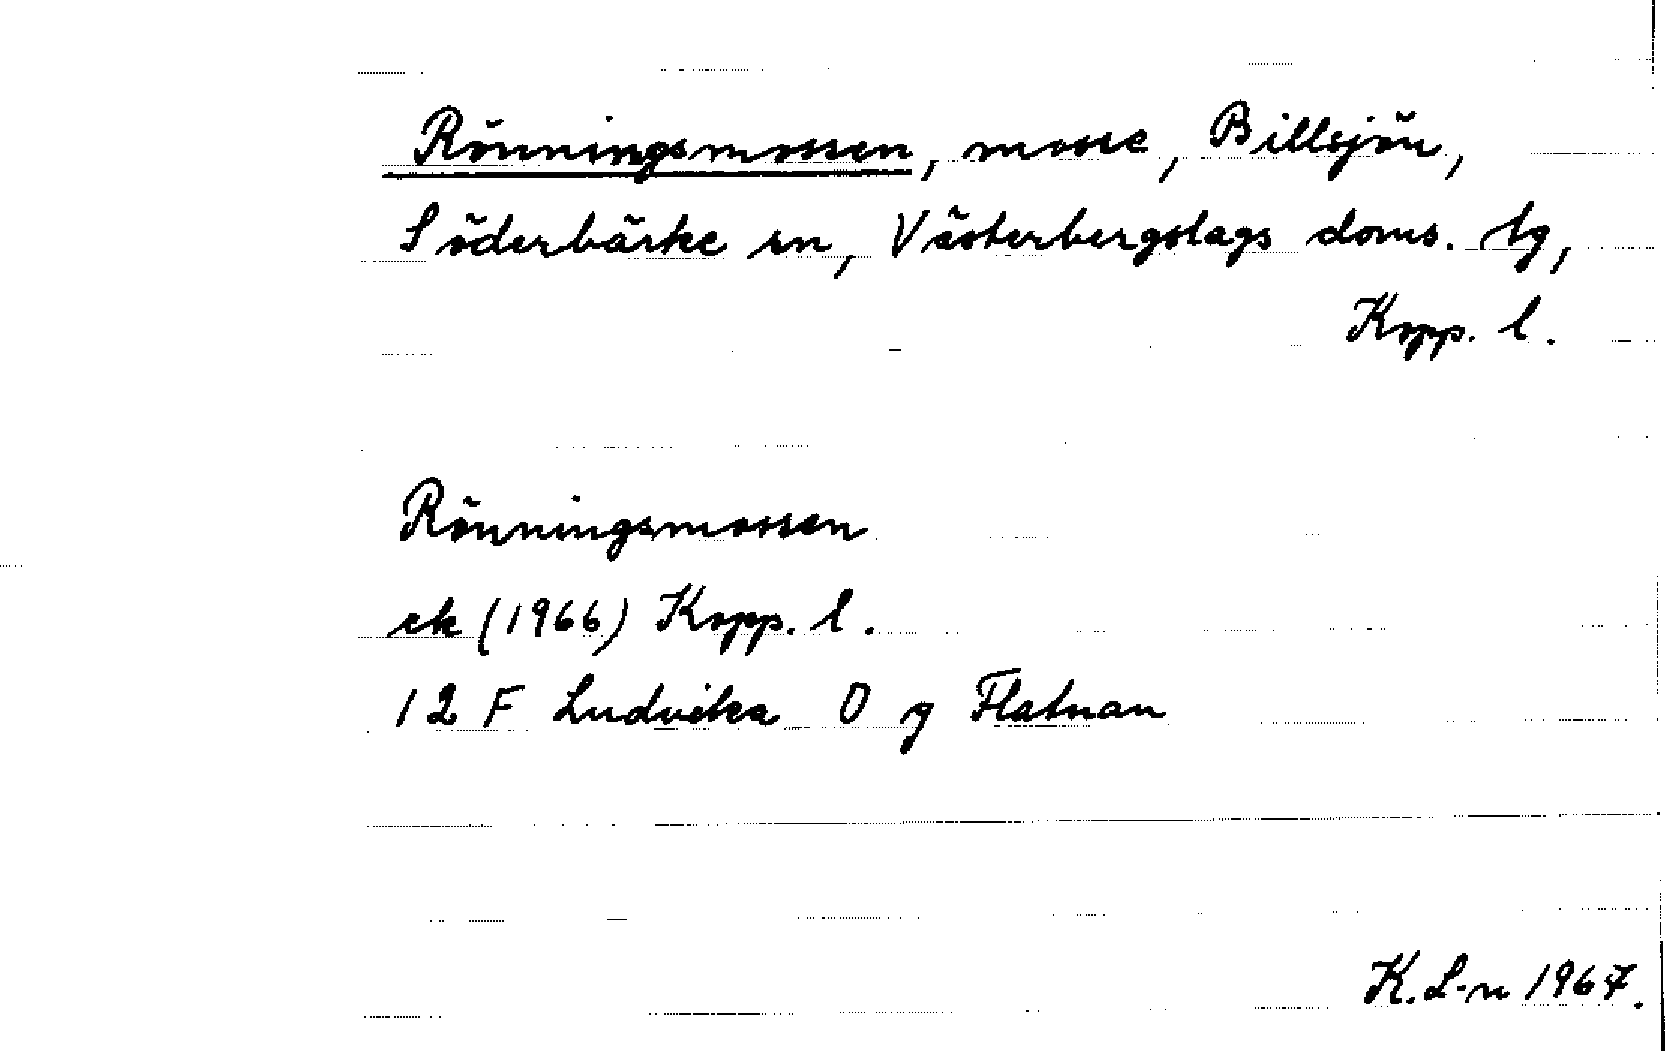 Rönningsmossen, mosse, Billsjön,
Söderbärke sn, Västerbergslags doms. tg,
Kopp. l.
Rönningsmossen
ek (1966) Kopp. l.
12 F Ludvika O g Flatnan
K. L-n 1967.